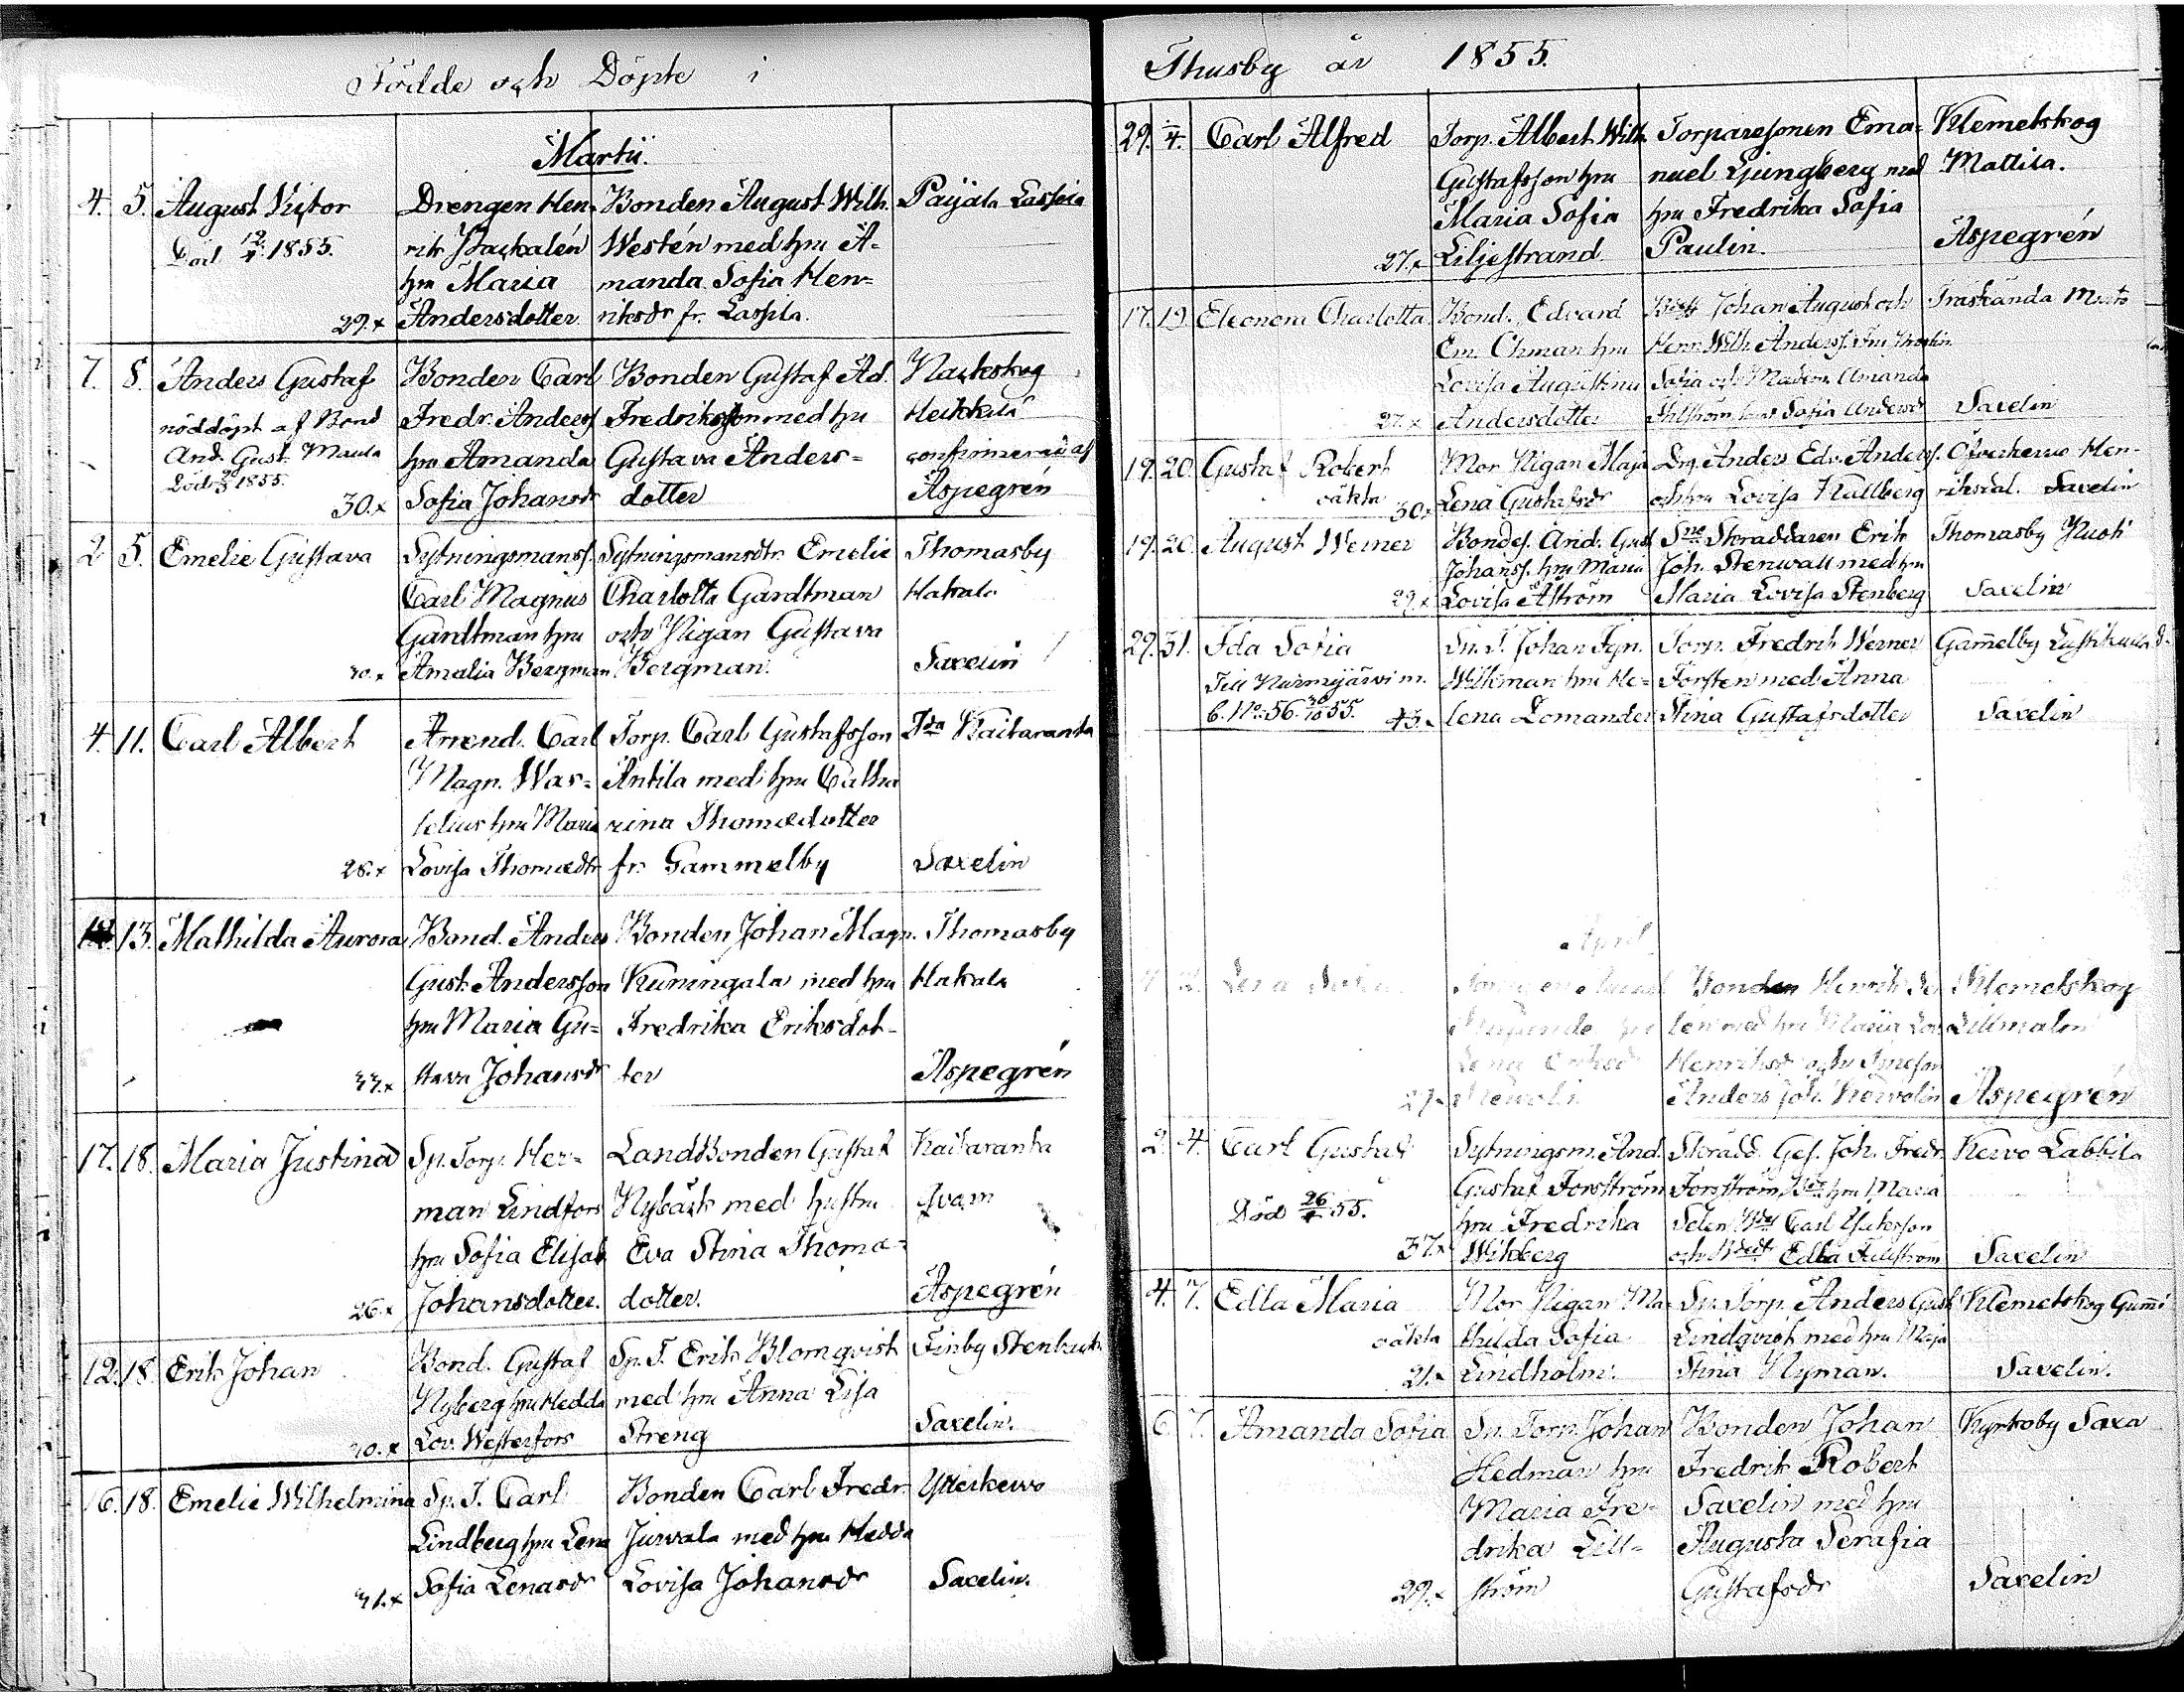 Födde och Döpte i
Martii.
4. 5. August Victor
Död 1855.
29.x
Drengen Hen-
rik
hru Maria
Andersdotter
Bonden August Wilh.
Westén med hru A-
manda Sofia Hen-
riksdr fr. Lassila.
Paijala Lassila
7. 8. Anders Gustaf
nöddöpt af Bond
And. Gust. Maula
Död 1855.
30.x
Bonden Carl
Fredr. Anderss
hru Amanda
Sofia Johansdr
Bonden Gustaf Ad.
Fredriksson med hru
Gustava Anders-
dotter
Nackskog
Heikkilä
confirmerad af
Aspegrén
2 5. Emelie Gustava
Sytningsmanss.
Carl Magnus
Gardtman hru
Amalia Bergman
Sytningsmansdtr. Emelie
Charlotta Gardtman
och Pigan Gustava
Bergman.
Thomasby
Hakala
Saxelin
4. 11. Carl Albert
28.x
Arrend. Carl
Magn. Was-
selius hru Maria
Lovisa Thomædtr
Torp. Carl Gustafsson
Antila med hru Catha
rina Thomædotter
fr. Gammelby
Kaitaranta
Saxelin
13. Mathilda Aurora
33.x
Bond. Anders
Gust. Andersson
hru Maria Gu-
stava Johansdr
Bonden Johan Magn.
Kuningala med hru
Fredrika Eriksdot-
ter
Thomasby
Hakala
Aspegrén
17. 18. Maria Justina
26.x
Sp. Torp. Her-
man Lindfors
hru Sofia Elisab
Johansdotter.
LandBonden Gustaf
Nybäck med hustru
Eva Stina Thoma-
dotter.
Kaitaranta
Qvarn
Aspegrén
12. 18. Erik Johan
Bond. Gustaf
Nyberg hru Hedda
Lov. Westerfors
Sp. T. Erik Blomqvist
med hru Anna Lisa
Streng
Finby
Saxelin.
16. 18. Emelie Wilhelmina
Sp. T. Carl
Lindberg hru Lena
Sofia Lenasdr
Bonden Carl Fredr.
Jurvala med hru Hedda
Lovisa Johansdr
Ytterkervo
Saxelin.
Thusby år 1855.
29. 4. Carl Alfred
27.x
Torp. Albert Wilh.
Gustafsson hru
Maria Sofia
Liljestrand
Torparesonen Ema-
nuel Ljungberg med
hru Fredrika Sofia
Paulin.
Klemetskog
Mattila.
Aspegrén
17. 19. Eleonora Charlotta
27.x
Bond. Edvard
Em. Öhman hru
Lovisa Augustina
Andersdotter
Johan August och
Henr. Wilh. Anderss.
Sofia och Amanda
Sofia Andersdr
Träskända
Saxelin
19. 20. Gustaf Robert
oäkta
30.x
Mor Pigan Maja
Lena Gustafsdr
Drg. Anders Edv. Anderss.
och hru Lovisa Hallberg
Öfverkervo Hen-
riksdal. Saxelin
19. 20. August Werner
29.x
Bondes. And. Gust
Johanss. hru Maria
Lovisa Åström
Skräddaren Erik
Joh. Stenwall med hru
Maria Lovisa Stenberg
Thomasby
Saxelin
29. 31. Ida Sofia
Till Nurmijärvi m.
b. No 56. 55.
43.x
Sp. T. Johan
Wikman hru He-
lena Lomander
Torp. Fredrik Werner
Forsten med Anna
Stina Gustafsdotter
Gamelby
Saxelin
April
Lena
Bonden Henrik
len med hru Maija
Henriksdr och
Anders Joh. Kervolin
Klemetskog
Lillmalm
Aspegrén
2. 4. Carl Gustaf
Död 26/4 55.
37.x
Sytningsm. And.
Gustaf Forsström
hru Fredrika
Wikberg
Skrädd. Ges. Joh. Fredr
Forsström, hru Maria
Carl
och Edla
Kervo Labbila
Saxelin
4. 7. Edla Maria
oäkta
21.x
Mor Pigan Ma-
thilda Sofia
Lindholm.
Sp. Torp. Anders Gust
Lindqvist med hru Maja
Stina Nyman.
Klemetskog
Saxelin.
6. 7. Amanda Sofia
29.x
Sp. Torp. Johan
Hedman hru
Maria Fre-
drika Lill-
ström
Bonden Johan
Fredrik Robert
Saxelin med hru
Augusta Serafia
Gustafsdr
Kyrkoby Saxa
Saxelin